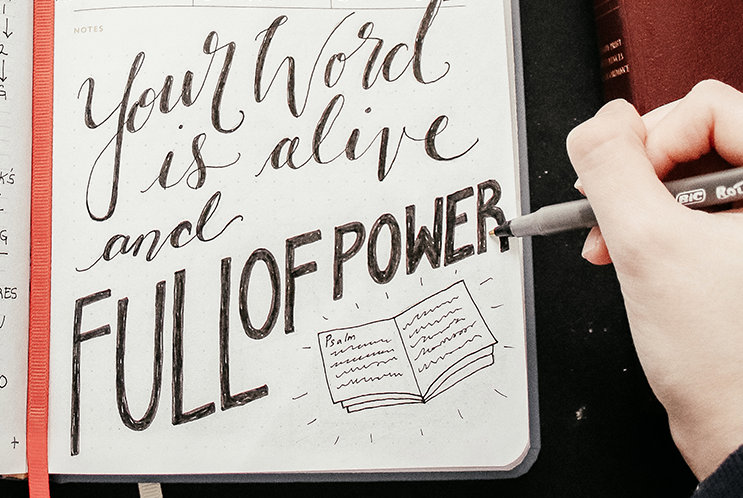 NOTES
Your Word
is alive
and
FULL OF POWER
Psalm
BIC